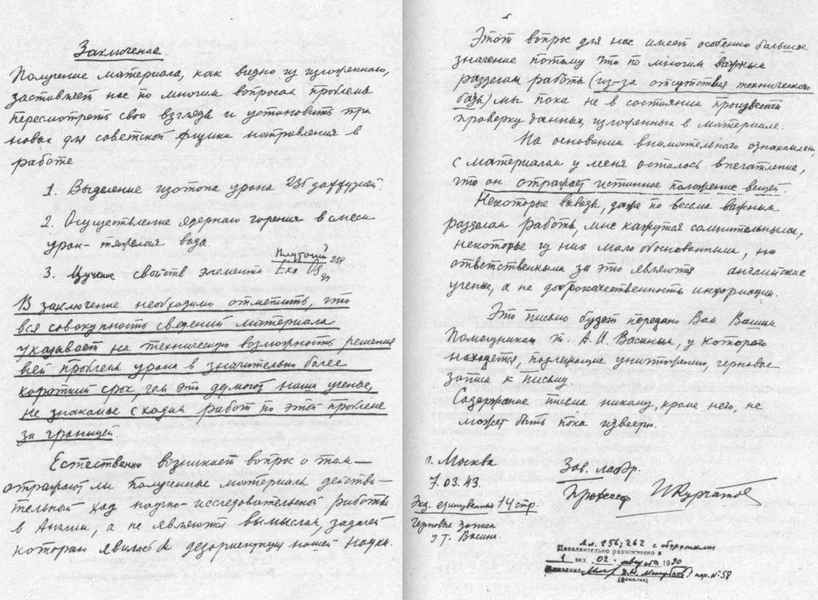 Заключение
Получение материала, как видно из изложенного,
заставляет нас по многим вопросам проблемы
пересмотреть свои взгляды и установить три
новых для советской физики направления в
работе
1. Выделение изотопа урана 235 диффузией.
2. Осуществление ядерного горения в смеси
уран-тяжелая вода.
3. Изучение свойств элемента Eka Os
В заключение необходимо отметить, что
вся совокупность сведений материала
указывает на техническую возможность решения
всей проблемы урана в значительно более
короткий срок, чем это думают наши ученые,
не знакомые с ходом работ по этой проблеме
за границей
Естественно возникает вопрос о том –
отражают ли полученные материалы действи-
тельный ход научно-исследовательской работы
в Англии, а не являются вымыслом, задачей
которой явилась бы дезориентация нашей науки.
Этот вопрос для нас имеет особенно большое
значение потому что по многим важным
разделам работы (из-за отсутствия технической
базы) мы пока не в состоянии произвести
проверку данных, изложенных в материале.
На основании внимательного ознакомления
с материалом у меня осталось впечатление,
что он отражает истинное положение вещей.
Некоторые выводы, даже по весьма важным
разделам работы, мне кажутся сомнительными,
некоторые из них мало обоснованными, но
ответственными за это являются английские
ученые, а не доброкачественность информации.
Это письмо будет передано Вам Вашим
Помощником т. А.И. Васиным, у которого
находятся, подлежащие уничтожению, черновые
записи к письму.
Содержание письма никому, кроме него, не
может быть пока известно.
г. Москва
7.03.43.
Зав. лабор.
Профессор И Курчатов
Экз. единственный 14 стр.
Черновые записи
у т. Васина.
л.л. 256; 262 с оборотами
1 экз. 02 августа 1990
нар. №58